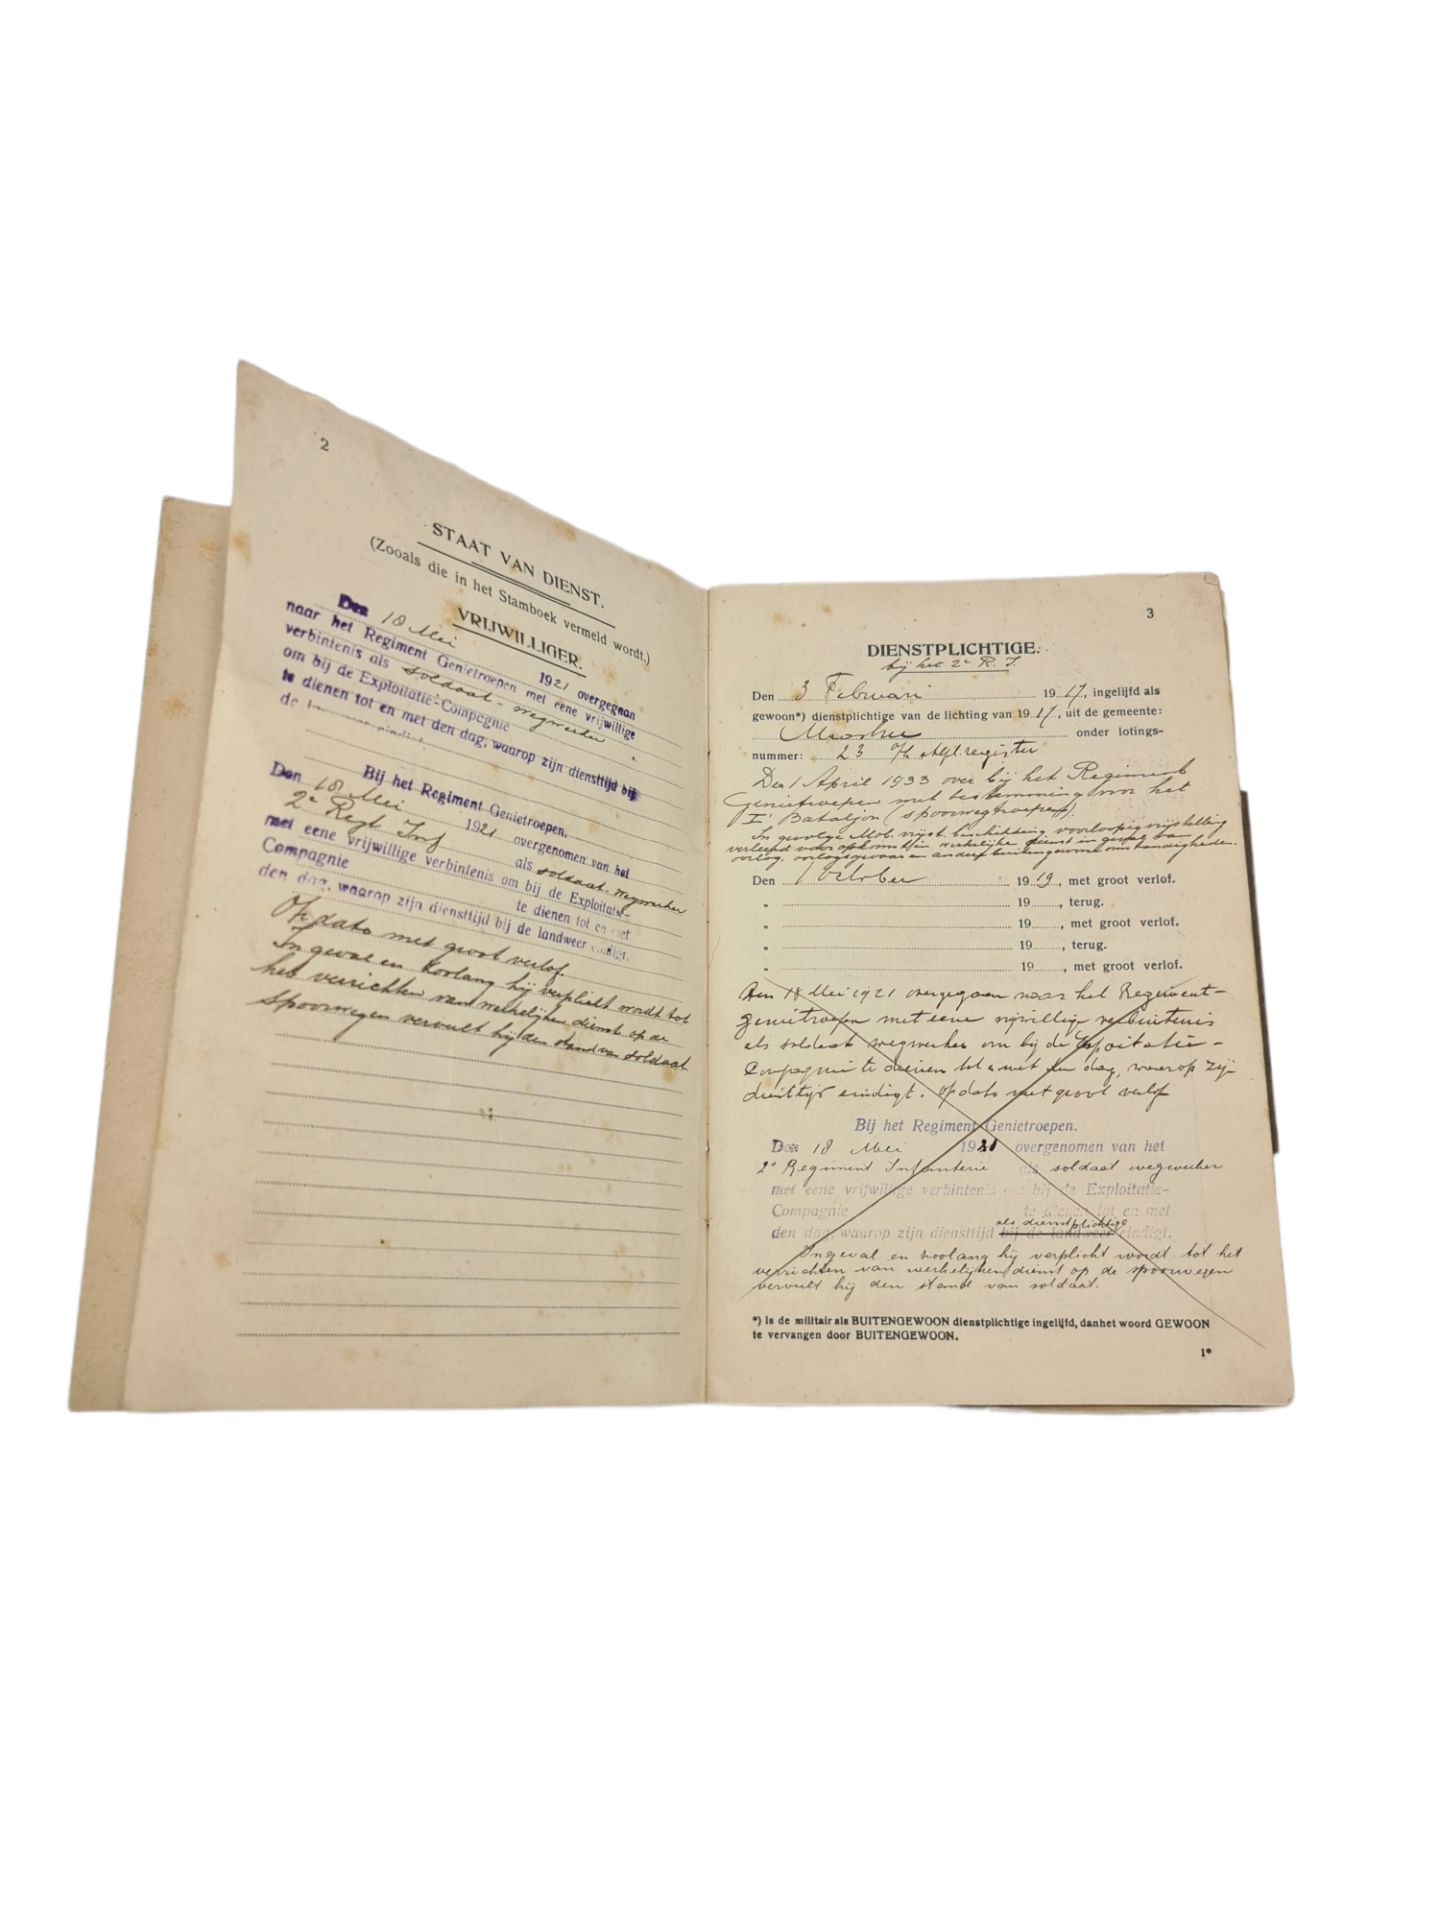 2
STAAT VAN DIENST.
(Zooals die in het Stamboek vermeld wordt.)
VRIJWILLIGER.
Den 18 Mei 1921 overgegaan
naar het Regiment Genietroepen met eene vrijwillige
verbintenis als soldaat-wegwerker
om bij de Exploitatie-Compagnie
te dienen tot en met den dag, waarop zijn diensttijd bij
de eindigt.
Bij het Regiment Genietroepen.
Den 18 Mei 1921 overgenomen van het
2e Regt Inf als soldaat-wegwerker
met eene vrijwillige verbintenis om bij de Exploitatie-
Compagnie te dienen tot en met
den dag, waarop zijn diensttijd bij de landweer eindigt.
Op dato met groot verlof.
In geval en zoolang hij verplicht wordt tot
het verrichten van werkelijken dienst op de
spoorwegen vervult hij den stand van soldaat
3
DIENSTPLICHTIGE.
bij het 2e R. I.
Den 3 Februari 1917, ingelijfd als
gewoon*) dienstplichtige van de lichting van 1917, uit de gemeente:
onder lotings-
nummer: 23 register
Den 1 April 1933 over bij het Regiment
Genietroepen met bestemming voor het
Ie Bataljon (spoorwegtroepen).
In gevolge Mob. vrijst. beschikking voorloopig vrijstelling
verleend voor opkomst in werkelijke dienst in geval van
oorlog, oorlogsgevaar en andere buitengewone omstandigheden.
Den 1 October 1919, met groot verlof.
„ 19 , terug.
„ 19 , met groot verlof.
„ 19 , terug.
„ 19 , met groot verlof.
Den 18 Mei 1921 overgegaan naar het Regiment-
genietroepen met eene vrijwillige verbintenis
als soldaat wegwerker om bij de Exploitatie-
Compagnie te dienen tot en met den dag, waarop zijn
diensttijd eindigt. Op dato met groot verlof
Bij het Regiment Genietroepen.
Den 18 Mei 1921 overgenomen van het
2e Regiment Infanterie als soldaat wegwerker
met eene vrijwillige verbintenis om bij de Exploitatie-
Compagnie te dienen tot en met
als dienstplichtige
den dag, waarop zijn diensttijd bij de landweer eindigt.
Ingeval en zoolang hij verplicht wordt tot het
verrichten van werkelijken dienst op de spoorwegen
vervult hij den stand van soldaat.
*) Is de militair als BUITENGEWOON dienstplichtige ingelijfd, dan het woord GEWOON
te vervangen door BUITENGEWOON.
1*